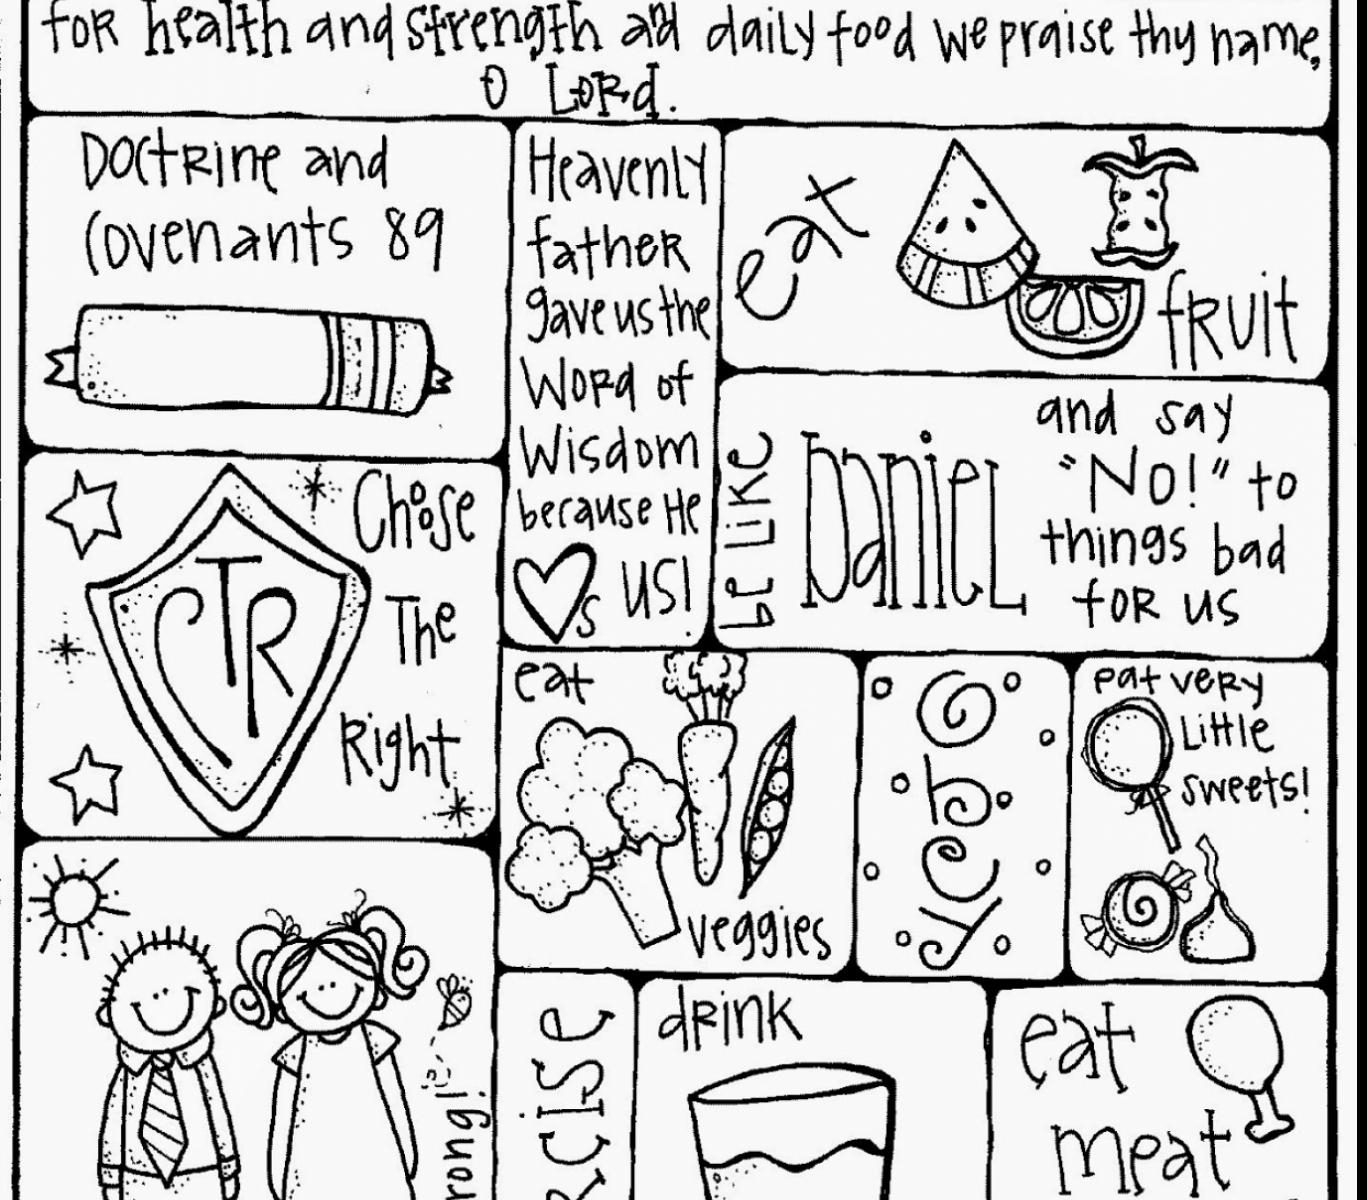 for health and strength and daily food we praise thy name,
O Lord.
Doctrine and
Covenants 89
Heavenly
father
gave us the
Word of
Wisdom
because He
s us!
eat
fruit
be like
Daniel
and say
"No!" to
things bad
for us
Choose
The
Right
CTR
eat
veggies
eat very
little
sweets!
drink
eat
meat